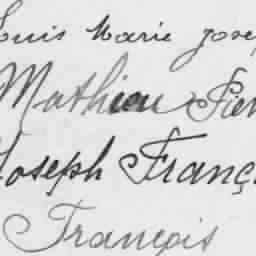 Louis Marie Josep
Mathieu Pier
Joseph Franç
François